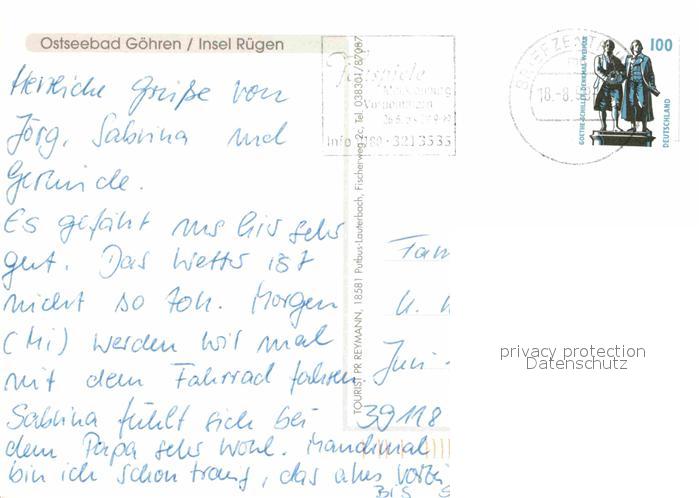 Ostseebad Göhren / Insel Rügen
Herzliche Grüße von
Jörg, Sabrina und
Es gefällt uns hier sehr
gut. Das Wetter ist
nicht so toll. Morgen
(Mi) werden wir mal
mit dem Fahrrad fahren.
Sabrina fühlt sich bei
dem Papa sehr wohl. Manchmal
bin ich schon traurig, das alles vorbei
Bis
TOURIST PR REYMANN, 18581 Putbus-Lauterbach, Fischerweg 2c, Tel. 038301/87087
Festspiele
Mecklenburg
Vorpommern
Info 0180-3213535
BRIEFZENTRUM
18.-8.
100
GOETHE-SCHILLER-DENKMAL WEIMAR
DEUTSCHLAND
Fam
39118
privacy protection
Datenschutz